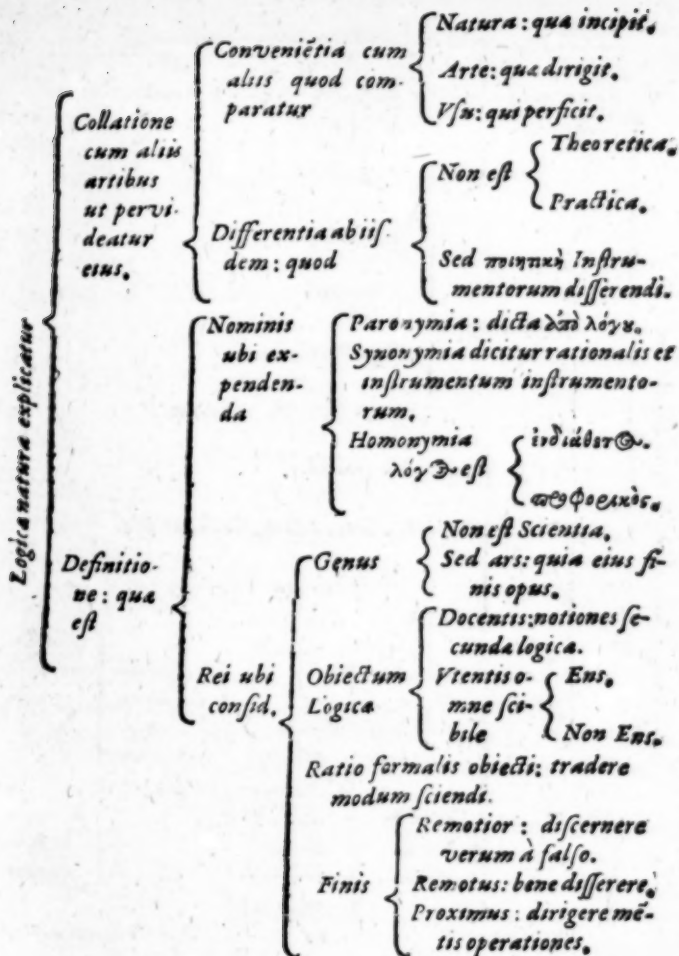 Logica natura explicatur
Collatione
cum aliis
artibus
ut pervi-
deatur
eius.
Conveniẽtia cum
aliis quod com-
paratur
Natura: quæ incipit.
Arte: quæ dirigit.
Vsu: qui perficit.
Differentia ab iiſ-
dem: quod
Non eſt
Theoretica.
Practica.
Sed ποιητικὴ Inſtru-
mentorum diſſerendi.
Definitio-
ne: quæ
eſt
Nominis
ubi ex-
penden-
da
Paronymia: dicta ἀπὸ λόγου.
Synonymia dicitur rationalis et
inſtrumentum inſtrumento-
rum.
Homonymia
λόγος eſt
ἐνδιάθετος.
προφορικὸς.
Rei ubi
conſid.
Genus
Non eſt Scientia.
Sed ars: quia eius fi-
nis opus.
Obiectum
Logicæ
Docentis: notiones ſe-
cundæ logicæ.
Vtentis o-
mne ſci-
bile
Ens.
Non Ens.
Ratio formalis obiecti: tradere
modum ſciendi.
Finis
Remotior: diſcernere
verum à falſo.
Remotus: bene diſſerere.
Proximus: dirigere mẽ-
tis operationes.